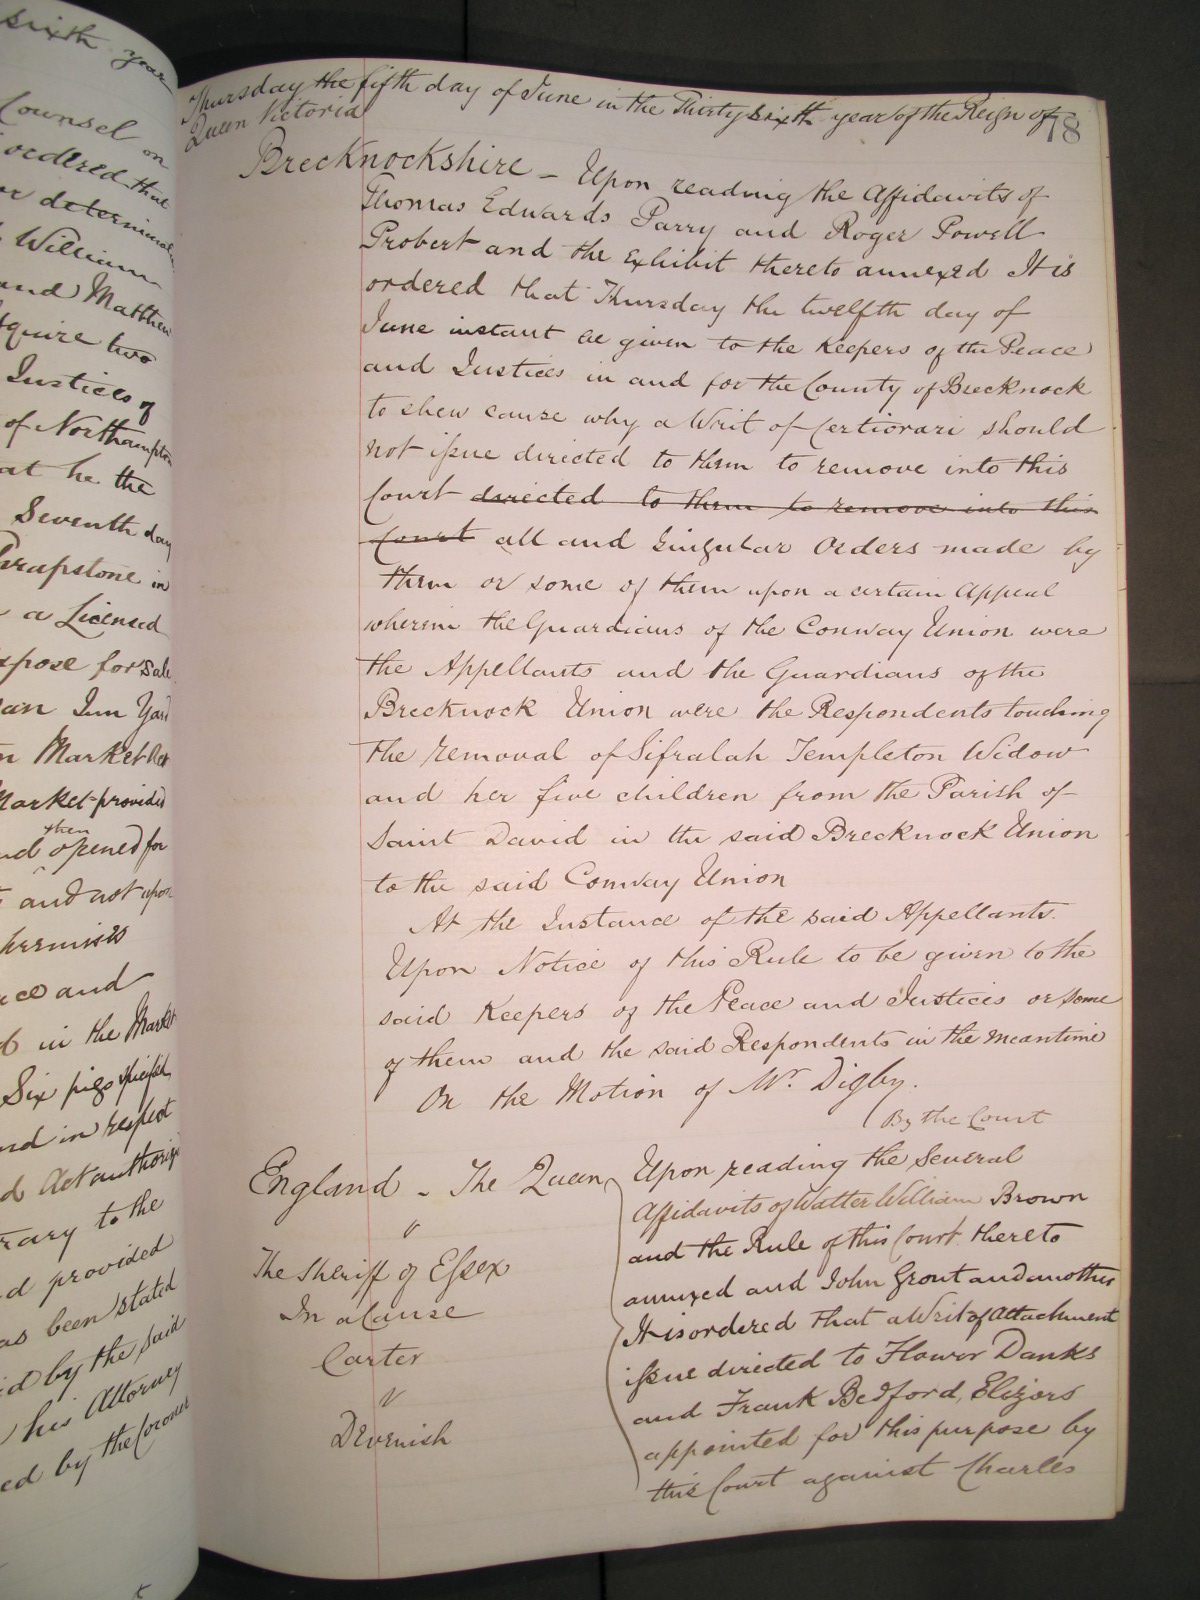 sixth year
Counsel on
ordered that
or determined
William
and Matthew
squire two
Justices of
of Northampton
at he the
Seventh day
Thrapstone in
a Licensed
xpose for sale
an Inn Yard
n Market
Market provided
then
nd opened for
and act upon
premises
ce and
in the Market
Six pigs
nd in respect
d Act
rary to the
d provided
as been stated
d by the said
his Attorney
ed by the Coroner
78
Thursday the fifth day of June in the Thirty sixth year of the Reign of
Queen Victoria
Brecknockshire – Upon reading the Affidavits of
Thomas Edwards Parry and Roger Powell
Probert and the Exhibit thereto annexed It is
ordered that Thursday the twelfth day of
June instant be given to the Keepers of the Peace
and Justices in and for the County of Brecknock
to shew cause why a Writ of Certiorari should
not issue directed to them to remove into this
Court directed to them to remove into this
Court all and singular Orders made by
them or some of them upon a certain Appeal
wherein the Guardians of the Conway Union were
the Appellants and the Guardians of the
Brecknock Union were the Respondents touching
the removal of Sifralah Templeton Widow
and her five children from the Parish of
Saint David in the said Brecknock Union
to the said Conway Union
At the Instance of the said Appellants.
Upon Notice of this Rule to be given to the
said Keepers of the Peace and Justices or some
of them and the said Respondents in the meantime
On the Motion of Mr. Digby.
By the Court
England – The Queen
"
The Sheriff of Essex
In a Cause
Carter
v
Devenish
Upon reading the several
Affidavits of Walter William Brown
and the Rule of this Court thereto
annexed and John Grout and another
It is ordered that a Writ of Attachment
issue directed to Flower Danks
and Frank Bedford, Elizors
appointed for this purpose by
this Court against Charles